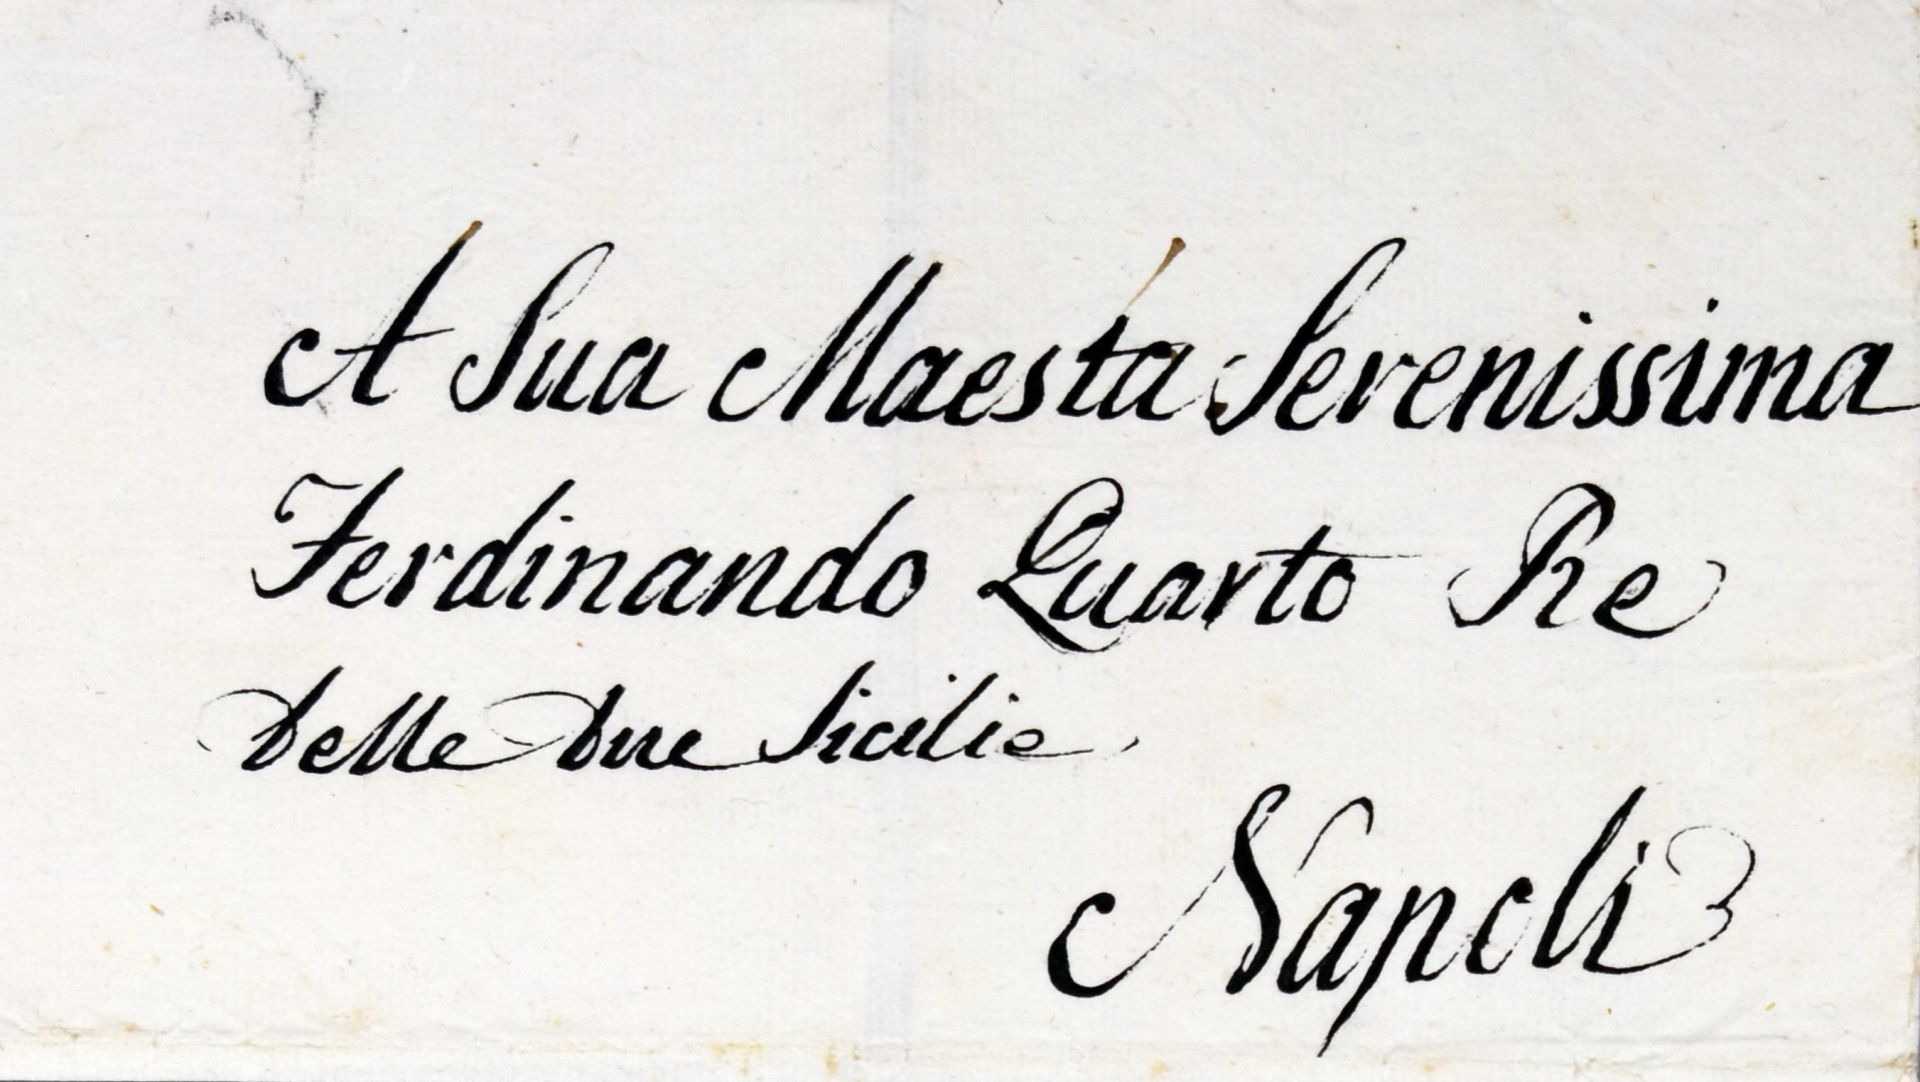 A Sua Maestà Serenissima
Ferdinando Quarto Re
Delle Due Sicilie
Napoli